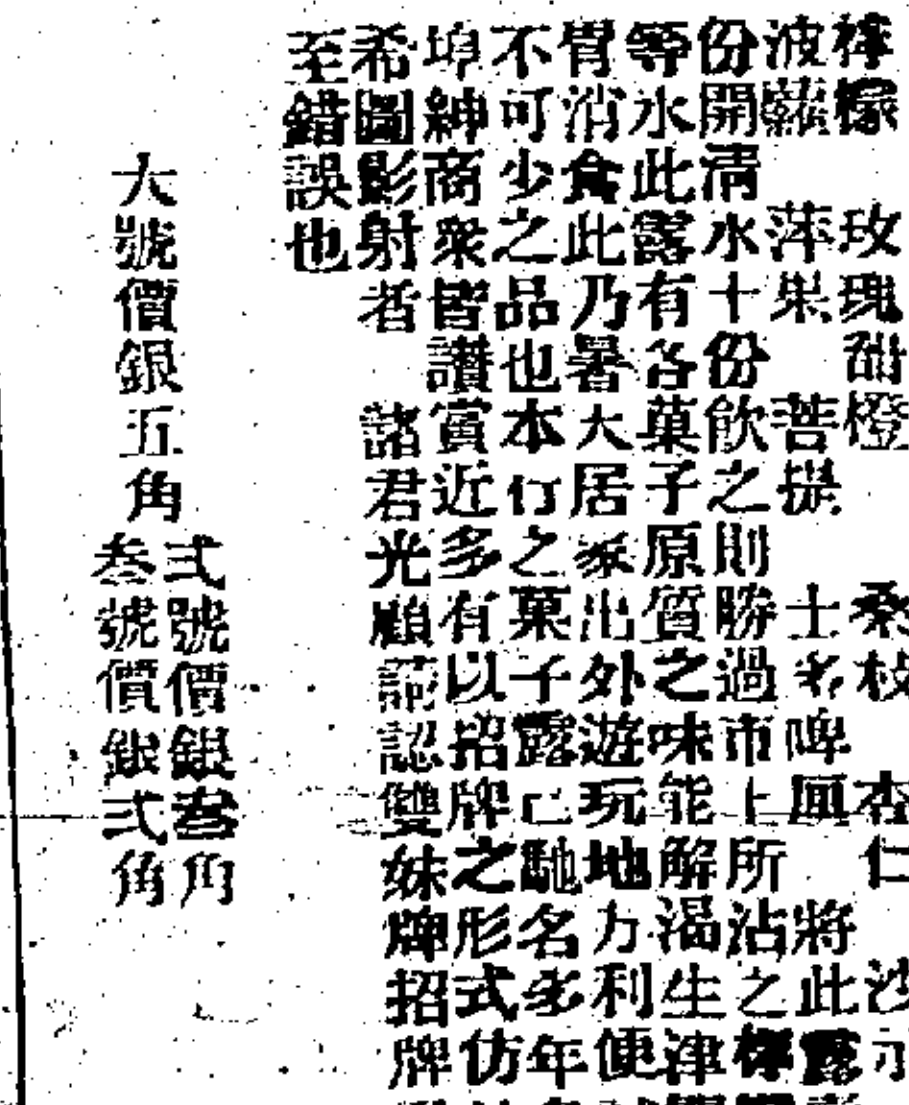 檸檬 玫瑰 甜橙 桑枝 杏仁 沙示
波蘿 苹果 菩提 士多啤厘 將此露
份開清水十份飲之則勝過市上所沽之檸
等水此露有各菓子原質之味能解渴生津
胃消食此乃暑天居家出外遊玩地方利便
不可少之品也本行之菓子露已馳名多年
埠紳商衆皆讚賞近多有以招牌之形式仿
希圖影射者 諸君光顧請認雙妹牌招牌
至錯誤也
大號價銀五角
弍號價銀叁角
叁號價銀弍角